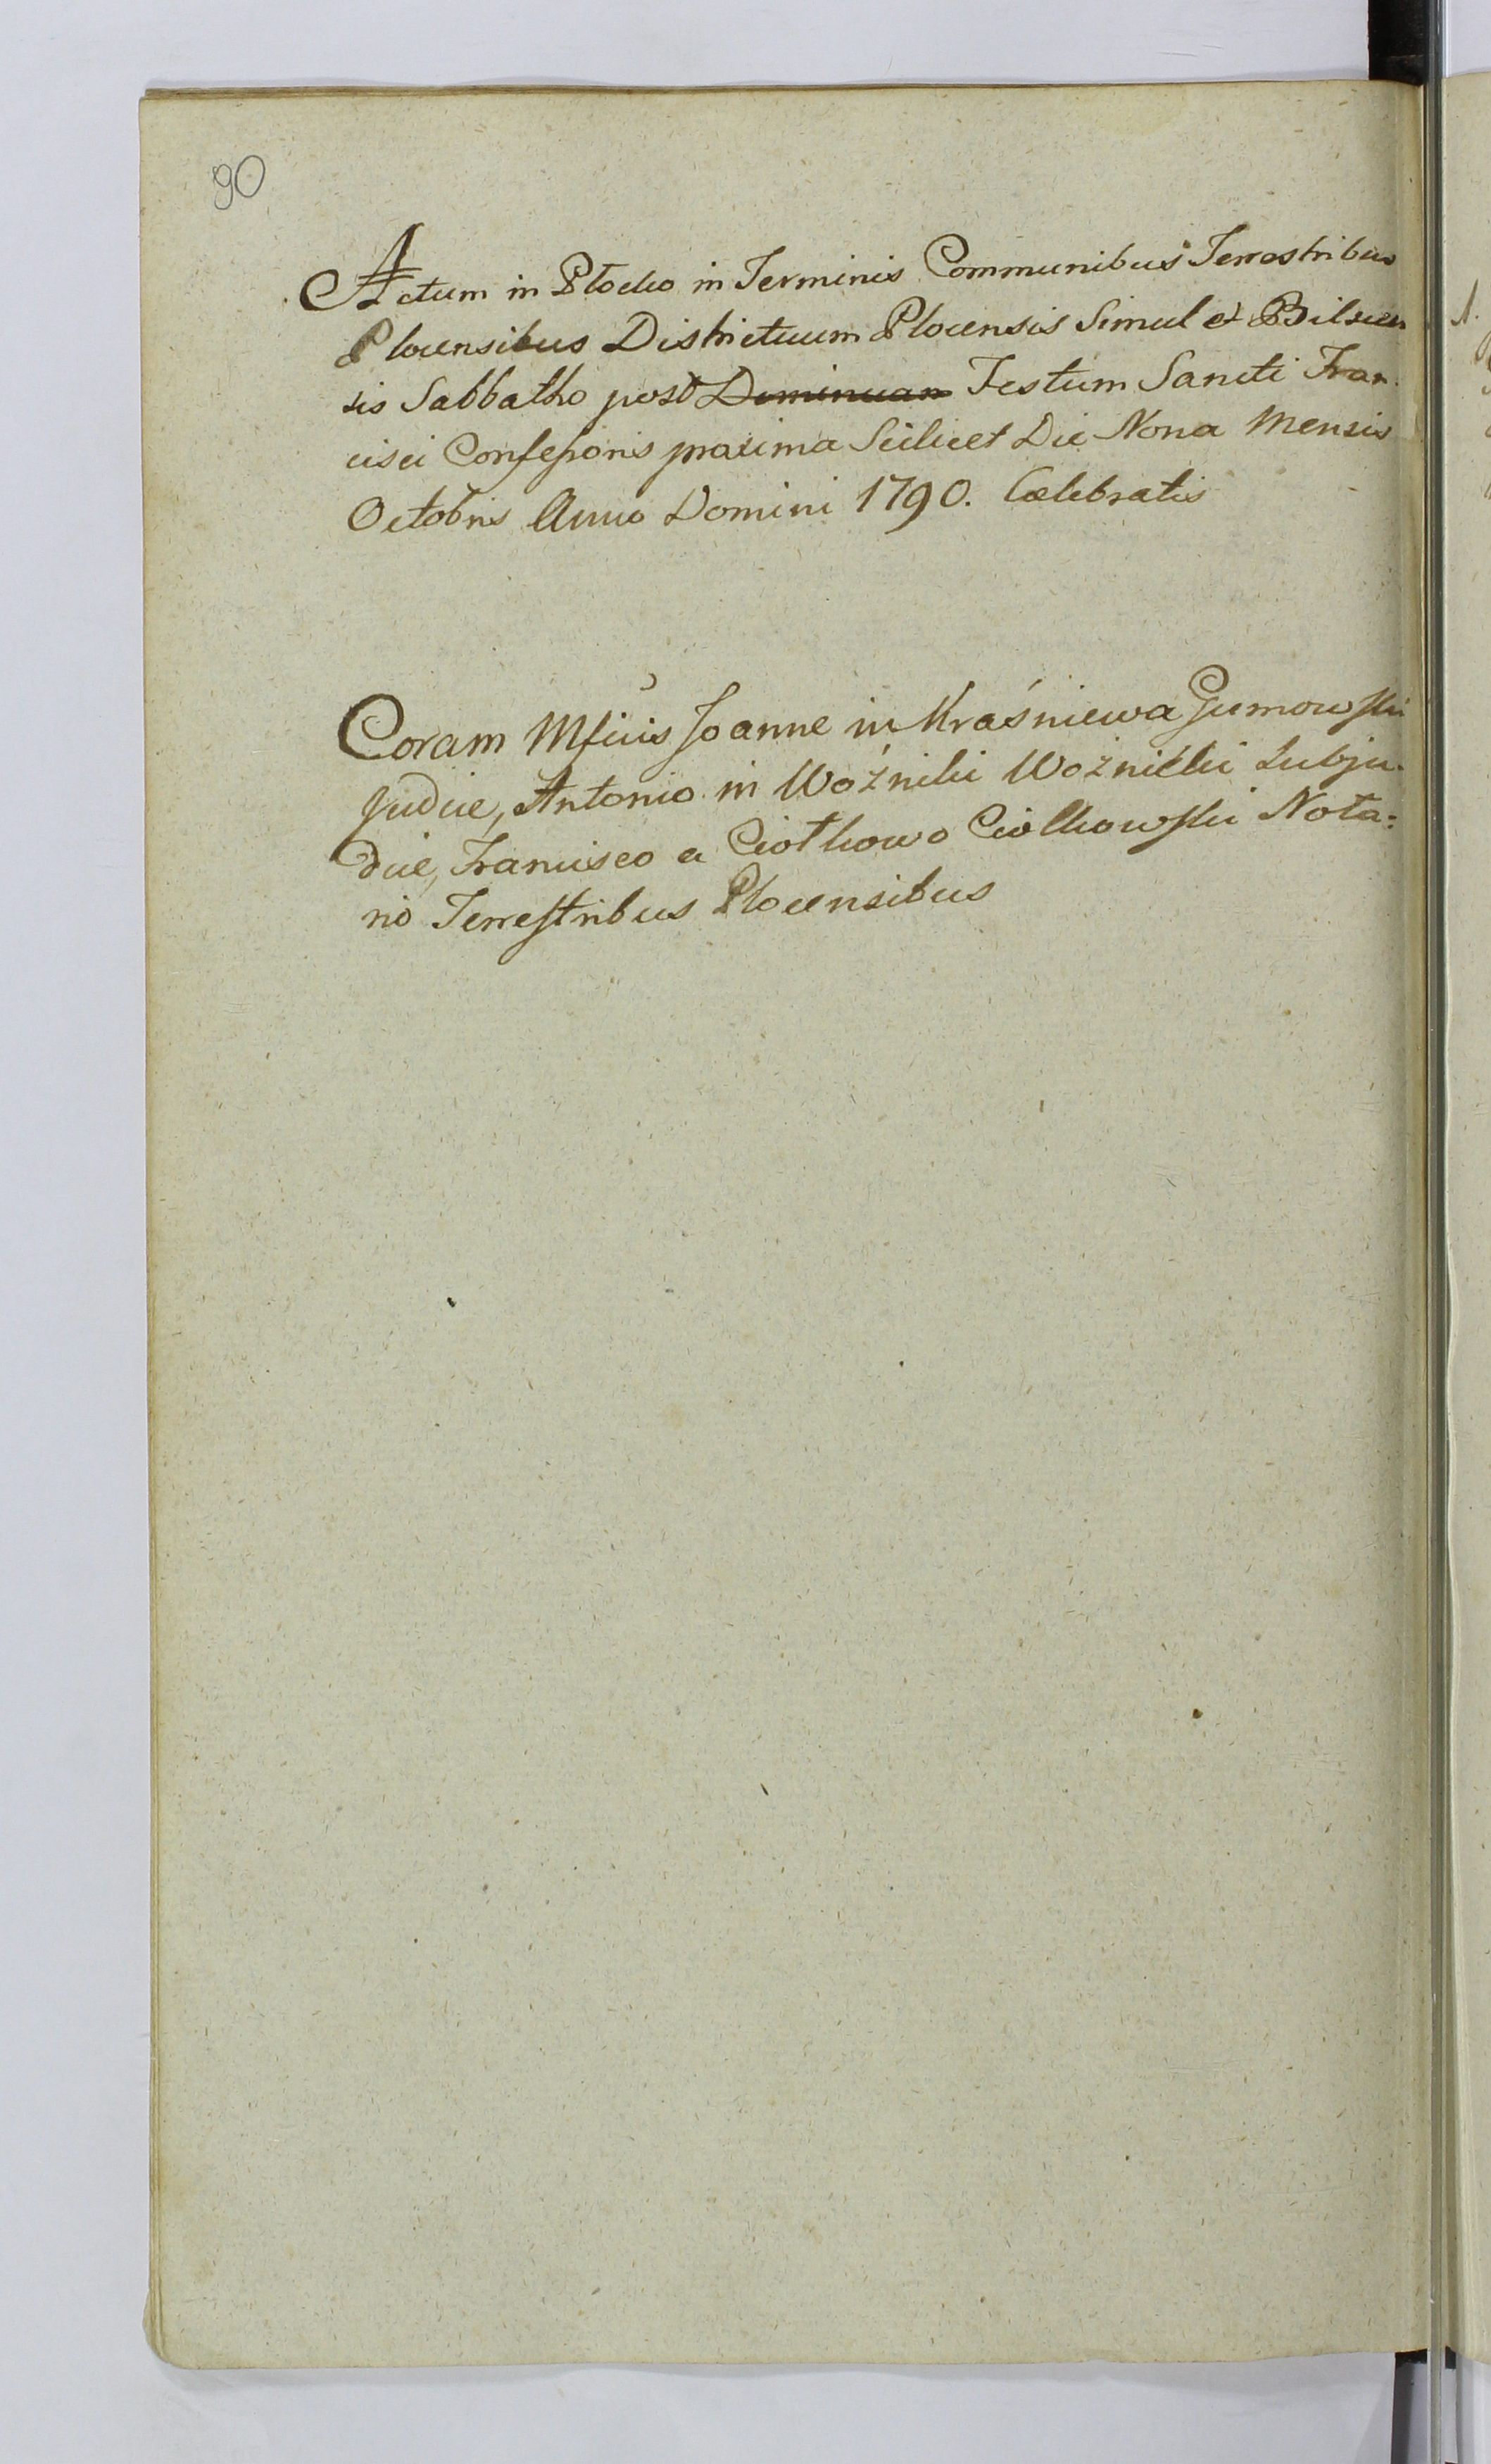 90
Actum in Płocko in Terminis Communibus Terrestribus
Plocensibus Districtuum Plocensis Simul et Bilscen
sis Sabbatho post Dominicam Festum Sancti Fran
cisci Confessoris proxima Scilicet Die Nona Mensis
Octobris Anno Domini 1790. Cælebratis
Coram Mficis Joanne in Kraśniewa Gumowski
Judice, Antonio in Woźniki Woźnicki Subju
dice, Francisco a Ciołkowo Ciołkowski Nota:
rio Terrestribus Plocensibus